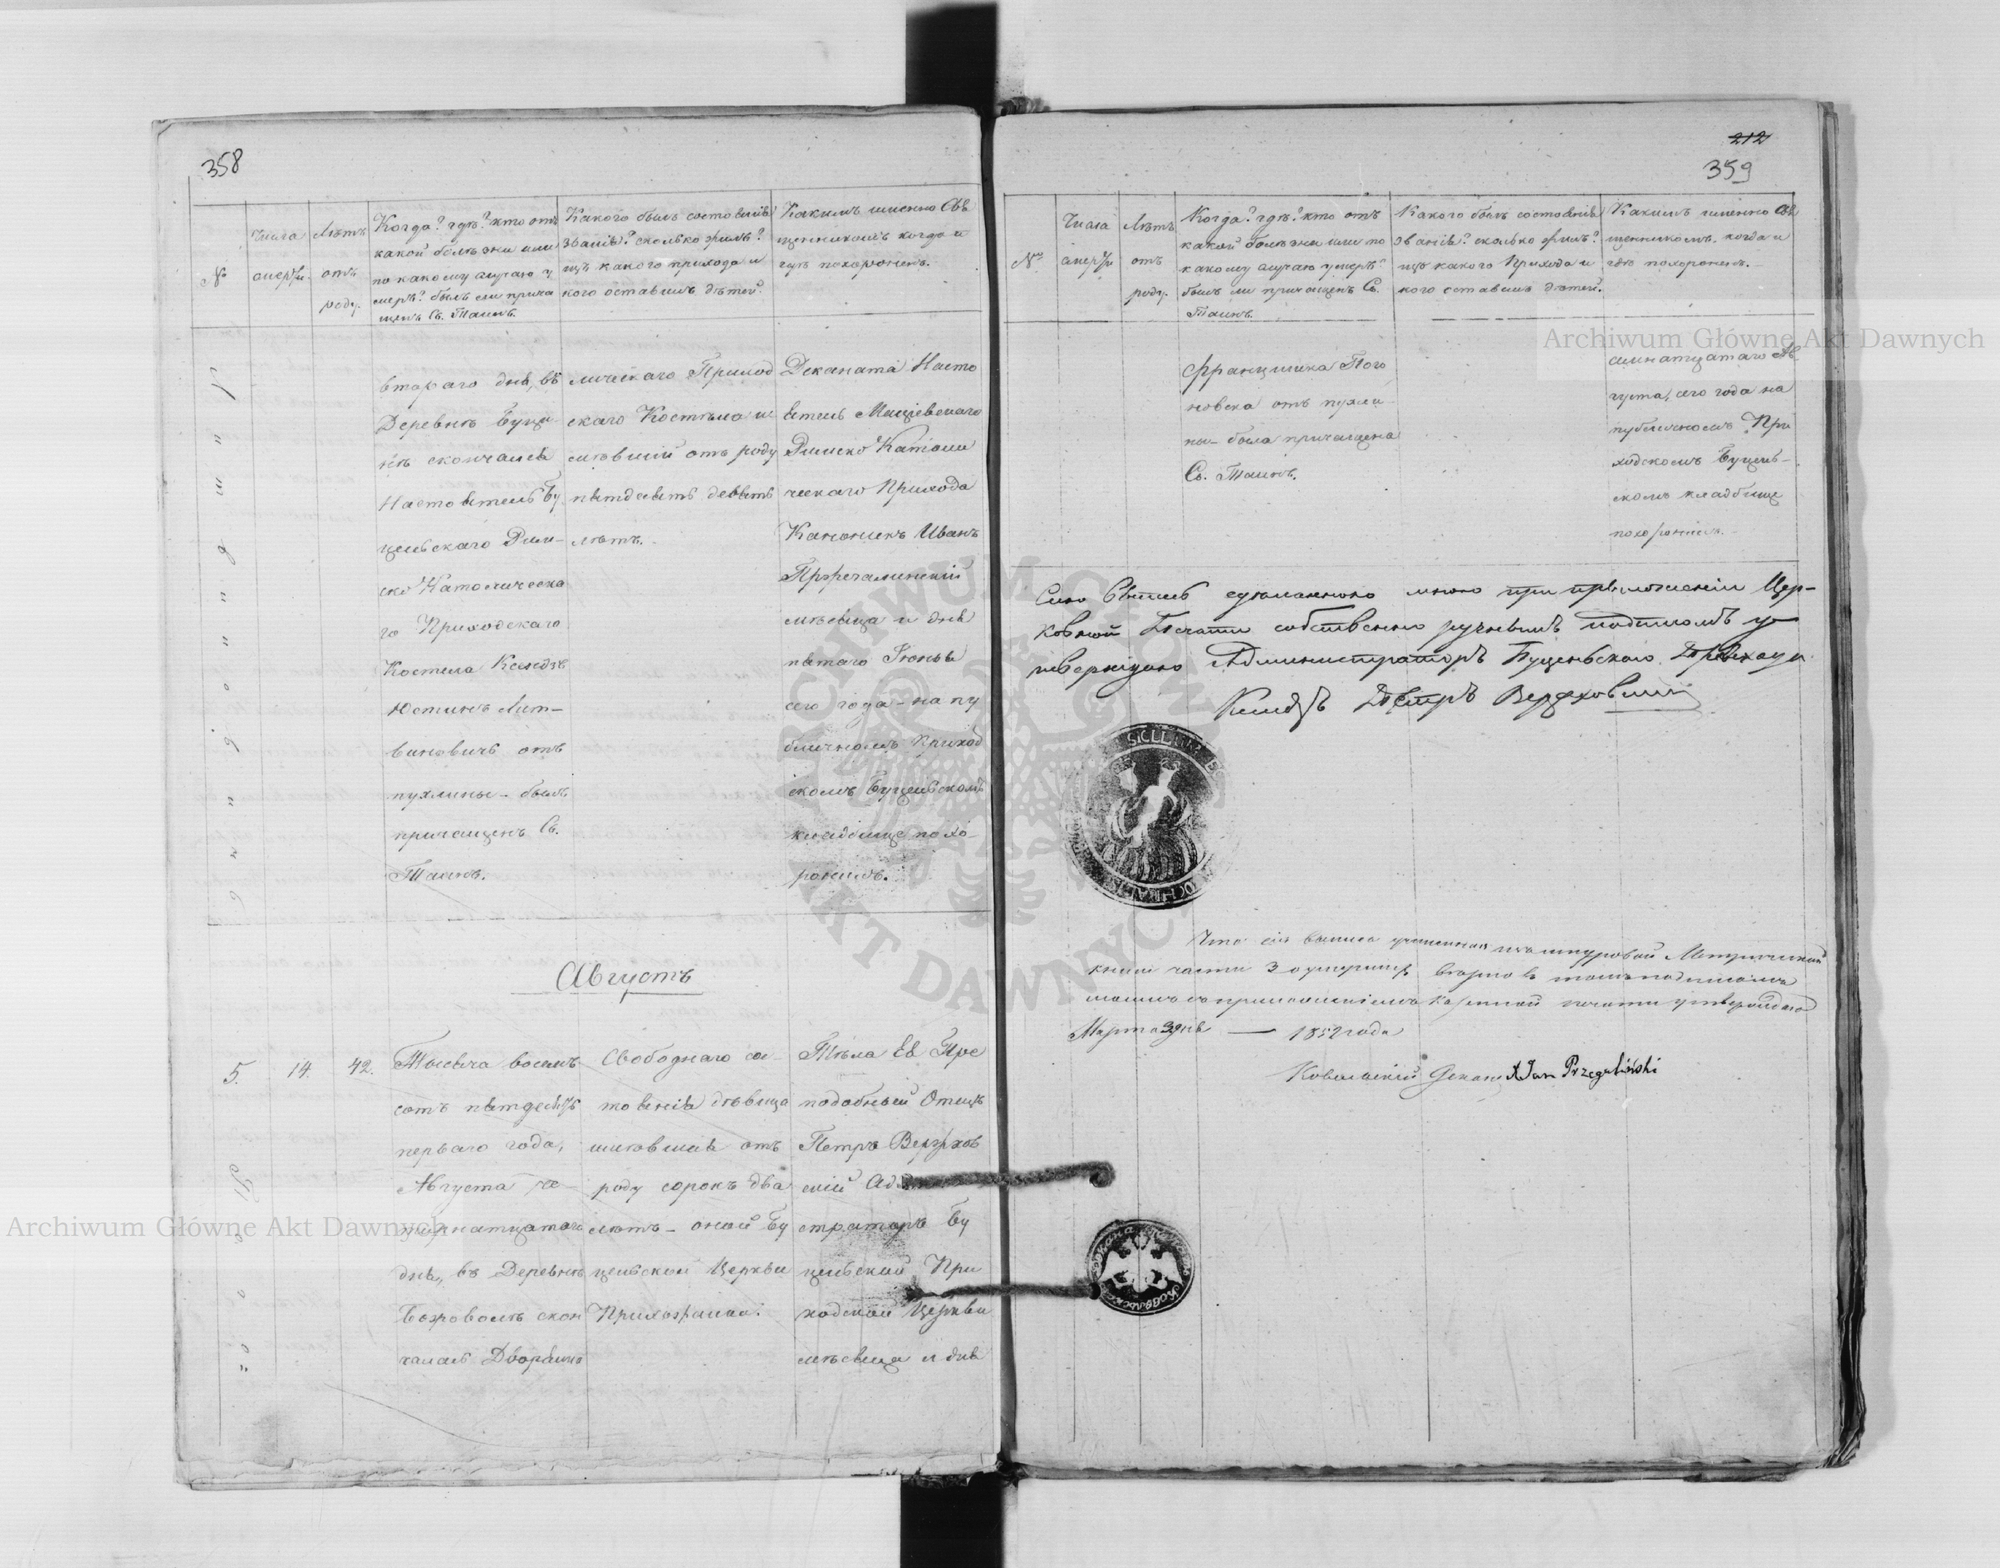 358
№
Числа
смерти.
Лѣтъ
отъ
роду.
Когда? гдѣ? кто отъ
какой болѣзни или
по какому случаю у
меръ? былъ ли прича
щенъ Св. Таинъ.
Какого былъ состоянія
званія? сколько жилъ?
изъ какого прихода и
кого оставилъ дѣтей?
Какимъ именно Свя
щенникомъ когда и
гдѣ похороненъ.
втораго дня, въ
Деревнѣ Буця
нѣ скончался
Настоятель Бу
цень­скаго Рим-
ско Католическа
го Приходскаго
Костела Ксендзъ
Юстинъ Лит-
виновичъ отъ
пухлины - былъ
причащенъ Св.
Таинъ.
лическаго Приход
скаго Костела и
мѣвшій отъ роду
пятдесятъ девять
лѣтъ.
Деканата Насто
ятель Маціевскаго
Римско Католи
ческаго Прихода
Каноникъ Иванъ
Пржегалинскій
мѣсяца и дня
пятаго Іюнья
сего года - на пу
бличномъ Приход
скомъ Буценьскомъ
кладбище похо-
ронилъ.
Августъ
5.
14.
42.
Тысяча восемь
сотъ пятдесятъ
перваго года,
Августа че-
тырнатцатаго
дня, въ Деревнѣ
скон
чалась Дворянка
Свободнаго со-
стоянія дѣвица
имѣвшая отъ
роду сорокъ два
лѣтъ - оной Бу
ценьской Церкви
Прихожанка.
Тѣла Ея Пре
подобный Отецъ
Петръ Вержхов
скій Ад
страторъ Бу
ценьский При
ходской Церкви
мѣсяца и дня
212
359
№
Числа
смерти
Лѣтъ
отъ
роду.
Когда? гдѣ? кто отъ
какой болѣзни или по
какому случаю умеръ?
былъ ли причащенъ Св.
Таинъ.
Какого былъ состоянія
званія? сколько жилъ?
изъ какого Прихода и
кого оставилъ дѣтей.
Какимъ именно Свя
щенникомъ. когда и
гдѣ похороненъ.
Францишка Пого
новска отъ пухли
ны - была причащена
Св. Таинъ.
семнатцатаго Ав
густа, сего года на
публичномъ При
ходскомъ Буцень-
скомъ кладбище
похоронилъ.
Сию Выпись сдѣланною мною при приложеніи Цер-
ковной Печати собственно ручнымъ подписомъ у
твержидаю Администраторъ Буценьскаго Прихода
Ксендзъ Петръ Вержховскій
SIGILLUM
Что сія выпись учиненная изъ шнуровой Метрической
книги части 3 о умершихъ вѣрно въ томъ подписомъ
моимъ съ приложеніемъ казенной печати утверждаю
Марта дня — 1852 года
Ковельскій Деканъ X Jan Przegaliński
Archiwum Główne Akt Dawnych
Archiwum Główne Akt Dawnych
ARCHIWUM GŁÓWNE AKT DAWNYCH